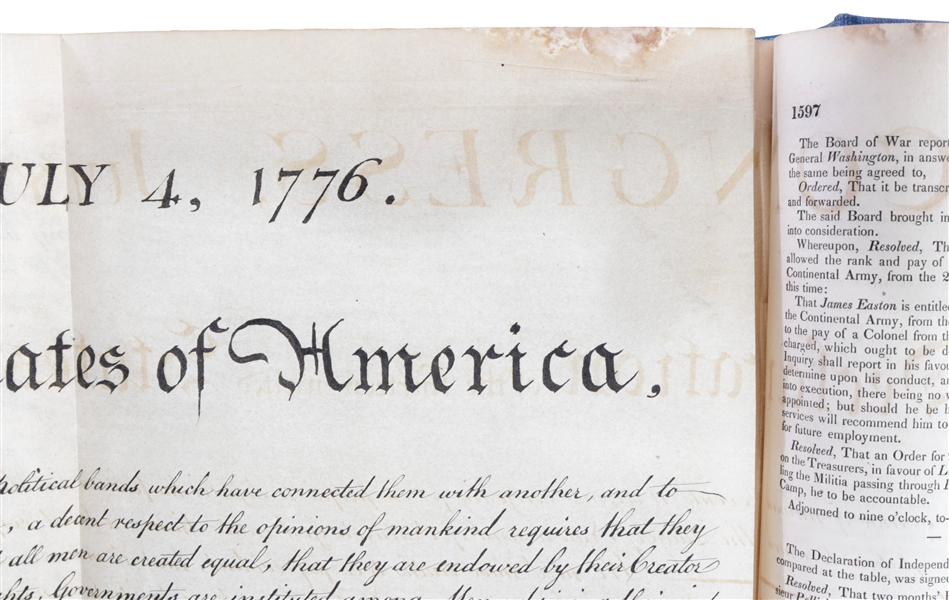 ULY 4, 1776.
ates of America,
political bands which have connected them with another, and to
, a decent respect to the opinions of mankind requires that they
all men are created equal, that they are endowed by their Creator
hts, Governments are instituted among Men,
1597
The Board of War report
General Washington, in answe
the same being agreed to,
Ordered, That it be transcr
and forwarded.
The said Board brought in
into consideration.
Whereupon, Resolved, Th
allowed the rank and pay of
Continental Army, from the 2
this time:
That James Easton is entitle
the Continental Army, from the
to the pay of a Colonel from th
charged, which ought to be d
Inquiry shall report in his favou
determine upon his conduct, an
into execution, there being no v
appointed; but should he be h
services will recommend him to
for future employment.
Resolved, That an Order for
on the Treasurers, in favour of L
ling the Militia passing through
Camp, he to be accountable.
Adjourned to nine o'clock, to-
The Declaration of Independ
compared at the table, was signe
Resolved, That two months'